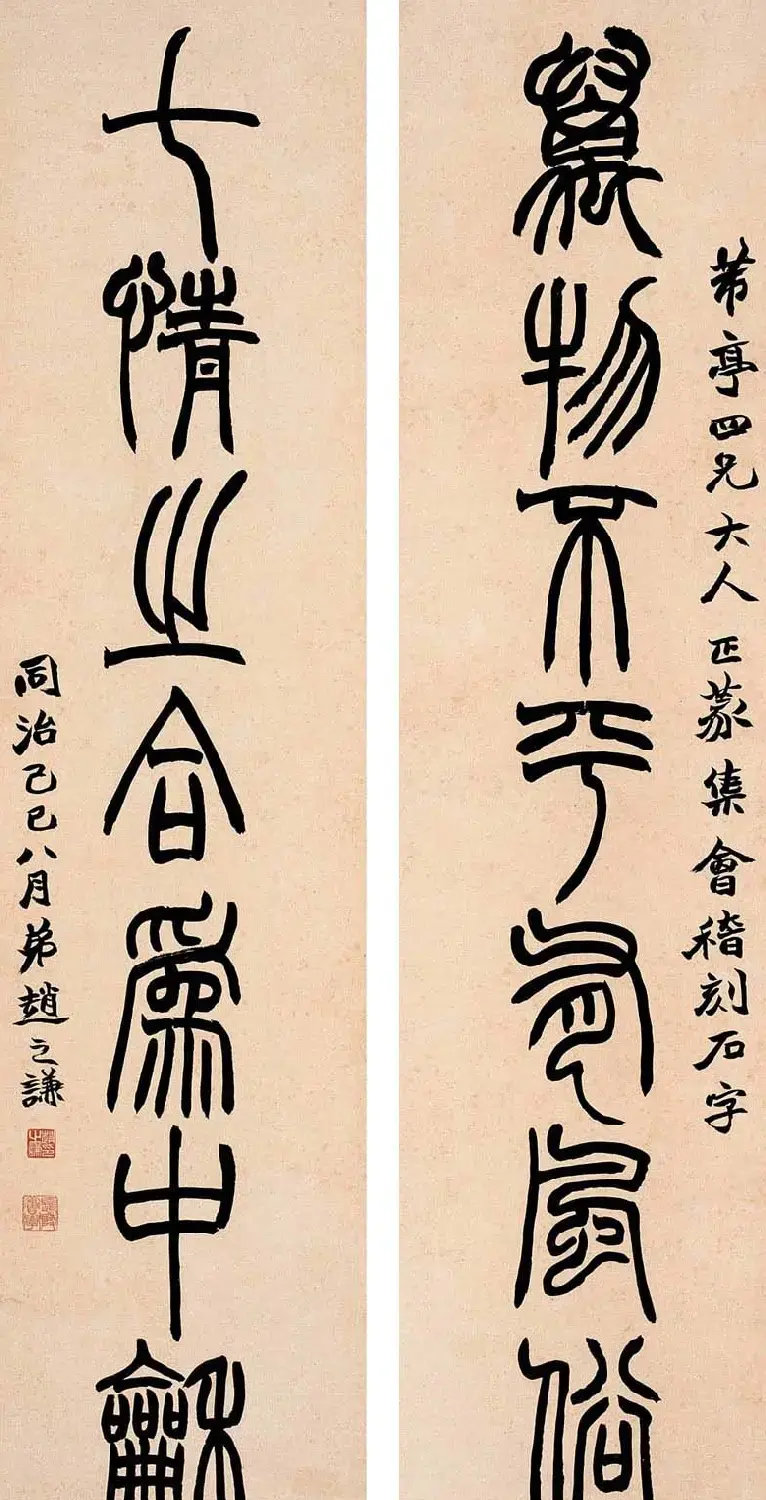 芾亭四兄大人正篆集會稽刻石字
萬物不平有風俗
七情之合爲中龢
同治己巳八月弟趙之謙